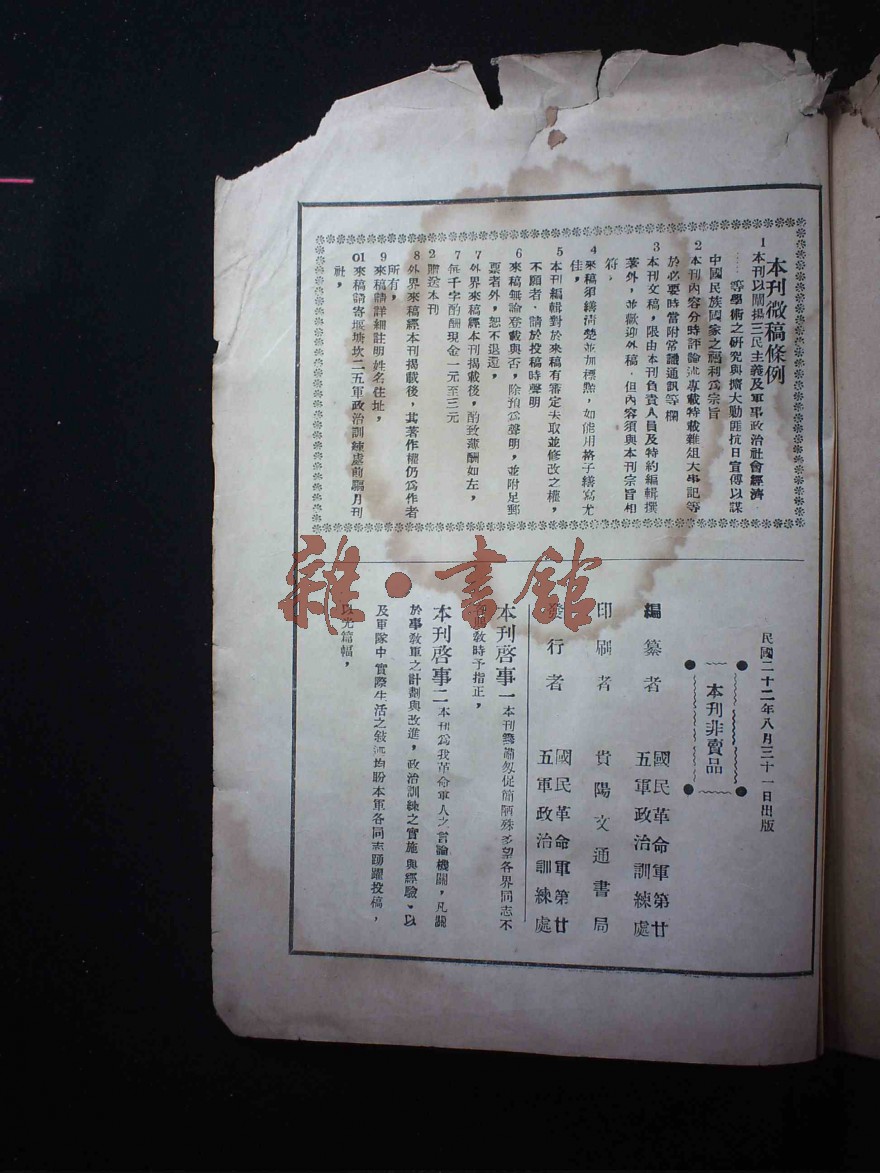 本刊徵稿條例
1 本刊以闡揚三民主義及軍事政治社會經濟
……等學術之研究與擴大勦匪抗日宣傳以謀
中國民族國家之福利爲宗旨
2 本刊內容分時評論述專載特載雜俎大事記等
於必要時當附常識通訊等欄
3 本刊文稿，限由本刊負責人員及特約編輯撰
著外，並歡迎外稿，但內容須與本刊宗旨相
符，
4 來稿須繕清楚並加標點，如能用格子繕寫尤
佳，
5 本刊編輯對於來稿有審定去取並修改之權，
不願者，請於投稿時聲明
6 來稿無論登載與否，除預爲聲明，並附足郵
票者外，恕不退還，
7 外界來稿經本刊揭載後，酌致薄酬如左，
7 每千字酌酬現金一元至三元
2 贈送本刊
8 外界來稿經本刊揭載後，其著作權仍爲作者
所有，
9 來稿請詳細註明姓名住址，
01 來稿請寄堰塘坎二五軍政治訓練處前驅月刊
社，
民國二十二年八月三十一日出版
本刊非賣品
編纂者 國民革命軍第廿五軍政治訓練處
印刷者 貴陽文通書局
發行者 國民革命軍第廿五軍政治訓練處
本刊啓事一 本刊籌備匆促簡陋殊多望各界同志不
教時予指正，
本刊啓事二 本刊爲我革命軍人之言論機關，凡關
於事教軍之計劃與改進，政治訓練之實施與經驗，以
及軍隊中實際生活之敍述均盼本軍各同志踴躍投稿，
以光篇幅，
雜·書館